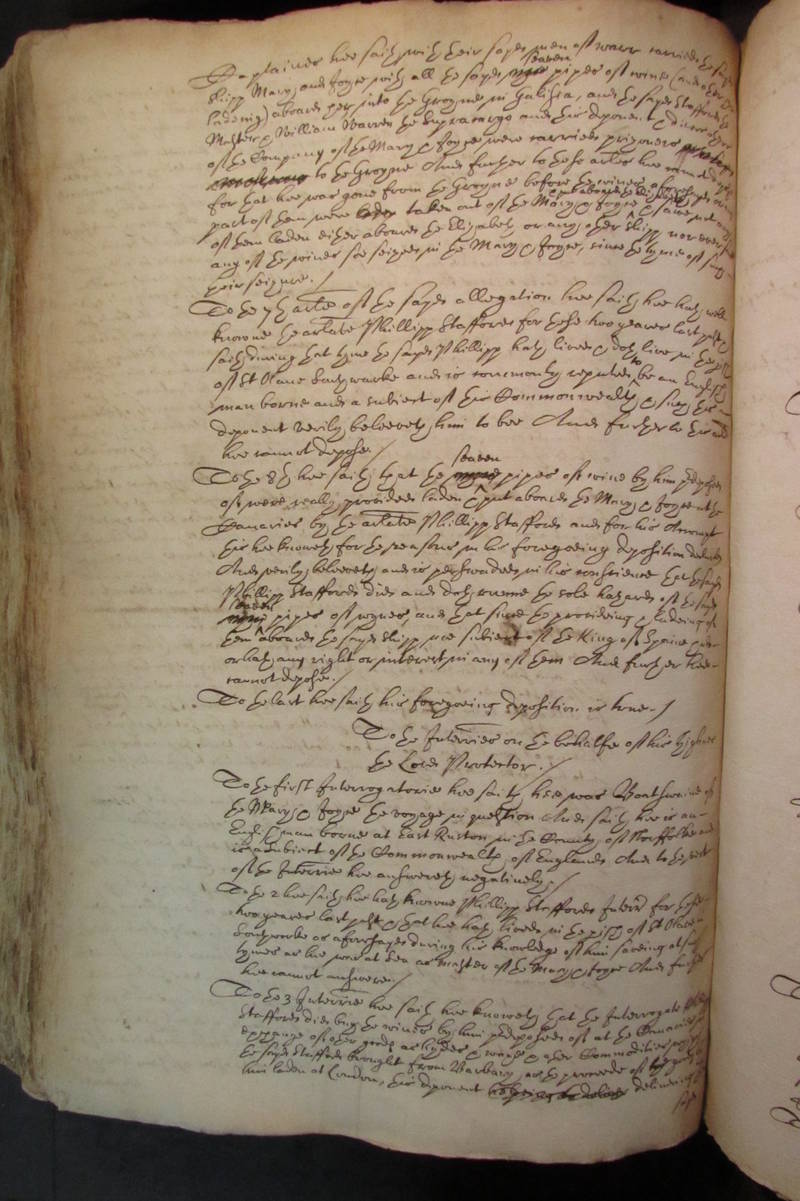 Captaines hee saith with their sayd men of warr carried the sayd
shipp Mary and Joyce with all the sayd nyne seaven pipes of wine (and other
ladeing) aboard her into the Groyne in Galitia, and the sayd Stafford the
Master, William Warren the Supracargo and this deponent & divers other
of the Company of the Mary & Joyce were carried prizoners
to the Groyne And further to these articles hee cannot depose
for that hee was gone from the Groyne before the wines aforesayd or any
part of them were taken out of the Mary & Joyce & saw not any
of them laden either aboard the Elizabeth or any other shipp nor ever saw
any of the wines soe seized in the Mary & Joyce, since the tyme of such
their seizure./
To the 7th article of the sayd allegation hee saith hee hath well
knowne the arlate Phillipp Stafford for these two yeares last past &
saith during that tyme the sayd Phillipp hath lived & doth live in the parish
of St Olave Southwarke and is commonly reputed to be an English
man borne and a subiect of this Commonwealth & such this
deponent verily beleeveth him to bee And further to this article
hee cannot depose./
To the 8th hee saith that the nyne seaven pipes of wine by him predeposed
of were really provided laden & put aboard the Mary & Joyce at the
Canaries by the arlate Phillipp Stafford and for his Accompt
this hee knoweth for the reasons in his foregoeing deposition declared
And verily beleeveth and is perswaded in his conscience that the sayd
Phillipp Stafford did and doth runne the sole hazard of the sayd
nyne seaven pipes of wynes and that since the provideing & ladeing of
them aboard the sayd shipp noe subiect of the King of Spaine had
or hath any right or interest in any of them And further hee
cannot depose./
To the last hee saith his foregoeing deposition is true./
To the Interries on the behalfe of his Highnes
the Lord Protector./
To the first Interrogatorie hee saith hee was Boatswaine of
the Mary & Joyce the voyage in question And saith hee is an
English man borne at East Ruston in the County of Norffolke and
is a subiect of the Commonwealth of England And to the rest
of the Interrie hee answereth negatively./
To the 2 hee saith hee hath knowne Phillipp Stafford Interr for these
two yeares last past & that hee hath lived in the parish of St Olave
Southwarke as aforesayd during his knowledge of him saveing at such
tymes as hee was at Sea as Master of the Mary & Joyce And further
hee cannot answere./
To the 3 Interrie hee saith hee knoweth that the Interrogate Phillipp
Stafford did buy the wines by him predeposed of at the Canaries in
exchange of other goods as hydes & waxe & other Commodities
the sayd Stafford brought from Barbary, as the proceede of goods
him laden at London, this deponent delivering